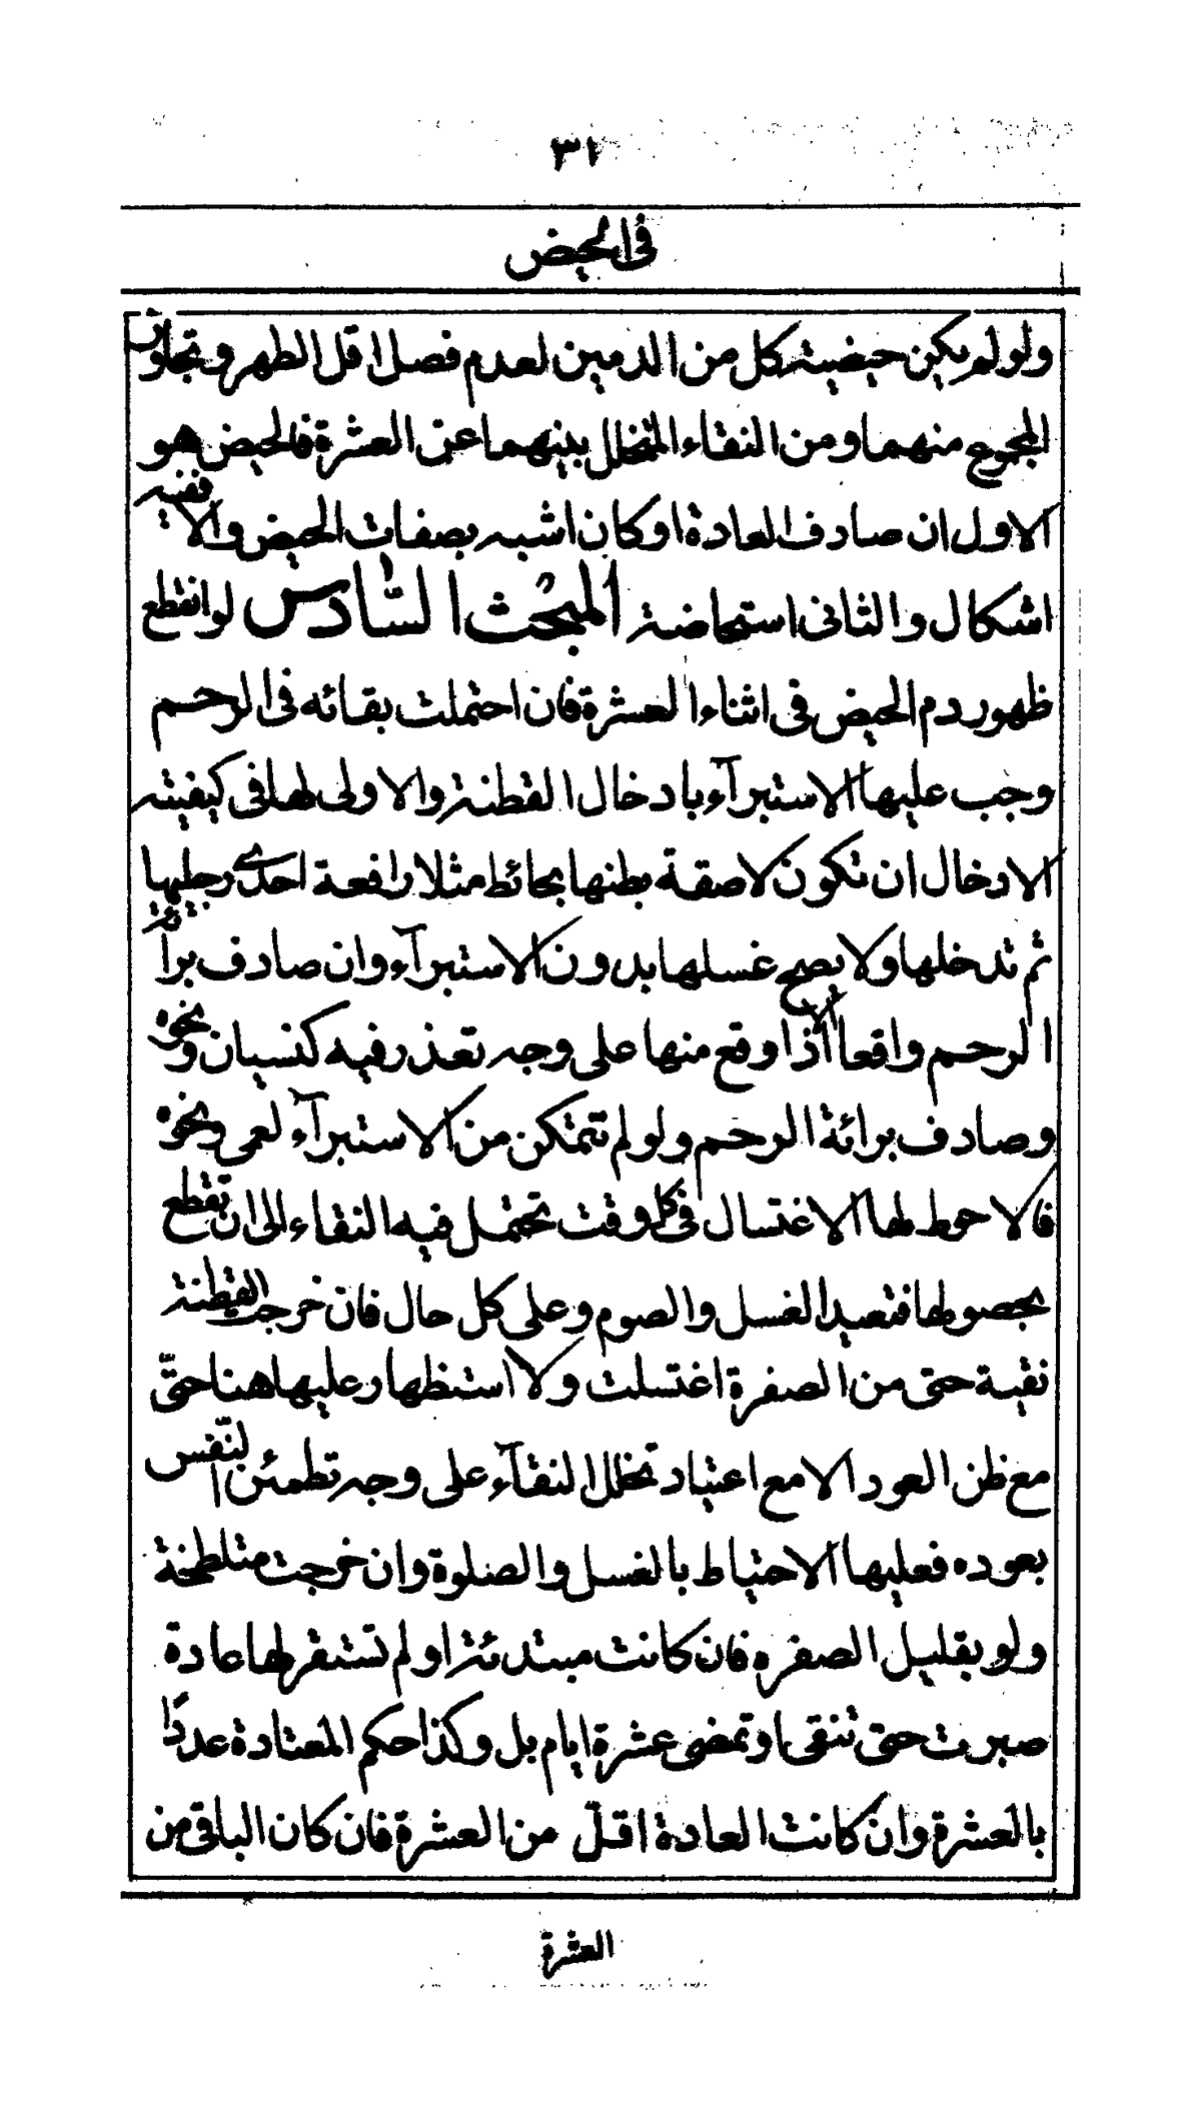 ٣١
فى الحيض
ولو لم يكن حيضية كل من الدمين لعدم فصل اقل الطهر وتجاوز
المجموع منهما ومن النقاء المتخلل بينهما عن العشرة فالحيض هو
الاول ان صادف العادة او كان اشبه بصفات الحيض والا ففيه
اشكال والثانى استحاضة المبحث السّادس لو انقطع
ظهور دم الحيض فى اثناء العشرة فان احتملت بقائه فى الرحم
وجب عليها الاستبرآء بادخال القطنة والاولى لها فى كيفيته
الادخال ان تكون لاصقة بطنها بحائط مثلا رافعة احدى رجليها
ثم تدخلها ولا يصح غسلها بدون الاستبرآء وان صادف برائة
الرحم واقعا الا اذا وقع منها على وجه تعذر فيه كنسيان ونحوه
وصادف برائة الرحم ولو لم تتمكن من الاستبرآء لعمى ونحوه
فالاحوط لها الاغتسال فى كل وقت تحتمل فيه النقاء الى ان تقطع
بحصولها فتعيد الغسل والصوم وعلى كل حال فان خرجت القطنة
نقية حتى من الصفرة اغتسلت ولا استظهار عليها هنا حتّى
مع ظن العود الا مع اعتياد تخلل النقآء على وجه تطمئن النّفس
بعوده فعليها الاحتياط بالغسل والصلوة وان خرجت متلطخة
ولو بقليل الصفره فان كانت مبتدئة او لم تستقر لها عادة
صبرت حتى تنقى او تمضى عشرة ايام بل وكذا حكم المعتادة عددًا
بالعشرة وان كانت العادة اقلّ من العشرة فان كان الباقى من
العشرة